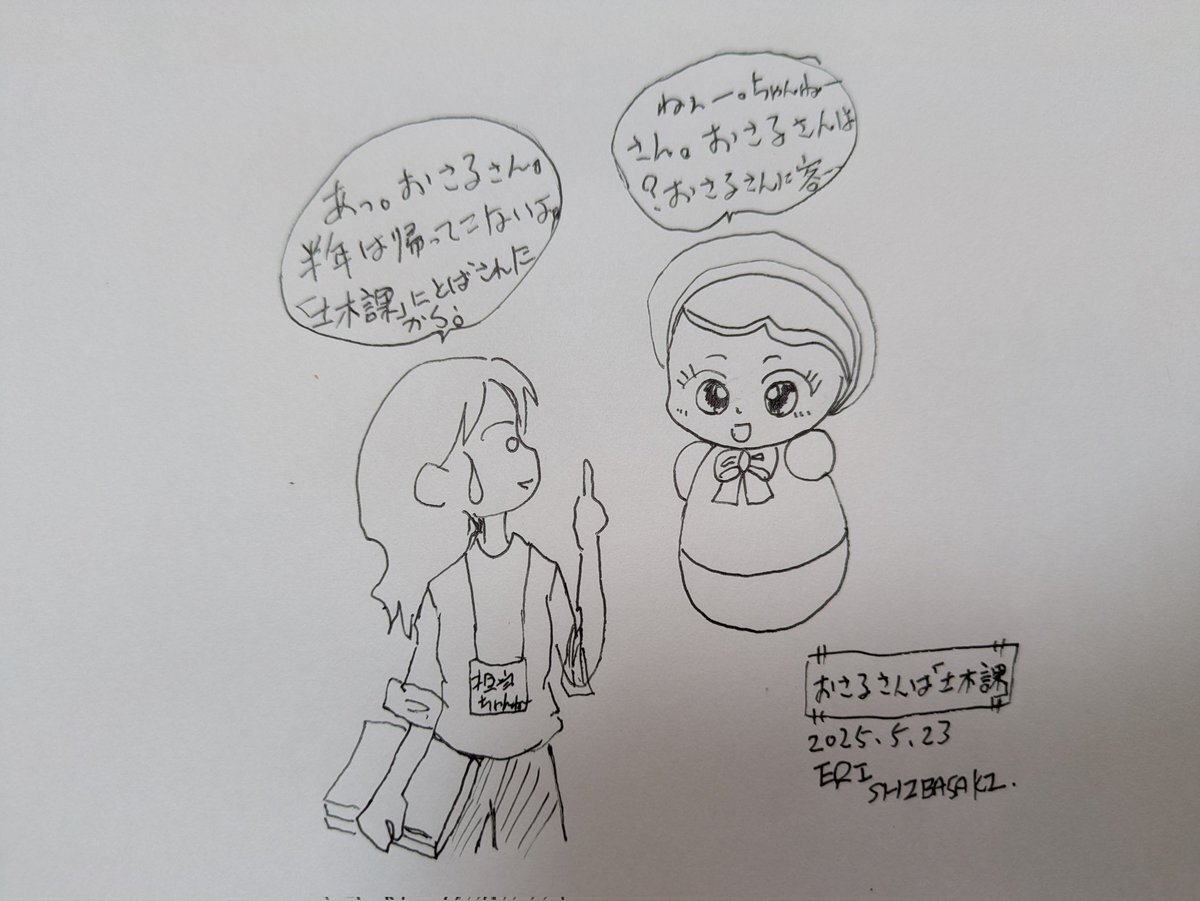 ねぇー。ちゃんねー
さん。おさるさんは
？おさるさんに客ー
あっ。おさるさん。
半年は帰ってこないよ。
「土木課」にとばされた
から。
担当
ちゃんねー
おさるさんは「土木課
2025.5.23
ERI
SHIBASAKI.